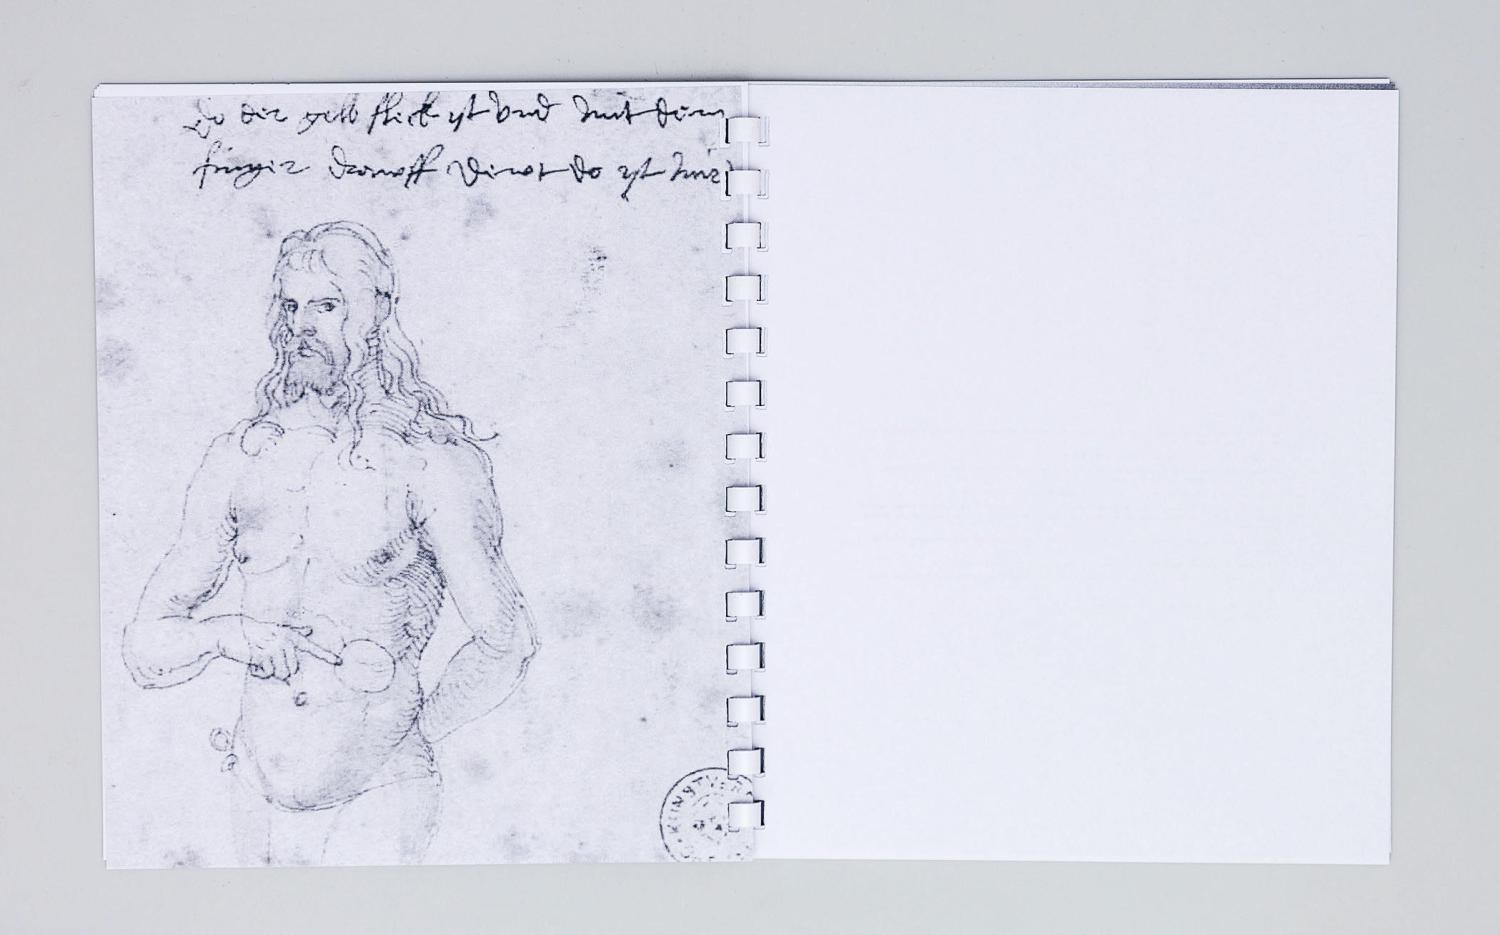 Do der gelb fleck ist vnd mit dem
finger drawff dewt do ist mir
KUNSTVER